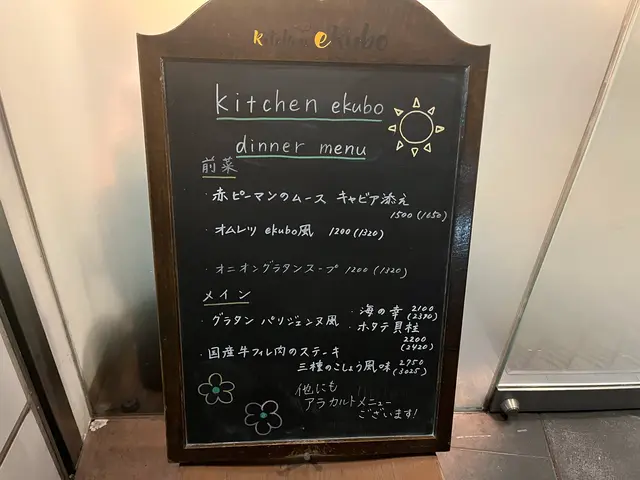 kitchen ekubo
kitchen ekubo
dinner menu
前菜
・赤ピーマンのムース キャビア添え
1500(1650)
・オムレツ ekubo風 1200(1320)
・オニオングラタンスープ 1200(1320)
メイン
・グラタン パリジェンヌ風
・海の幸 2100
(2310)
・ホタテ貝柱
2200
(2420)
・国産牛フィレ肉のステーキ
三種のこしょう風味 2750
(3025)
他にも
アラカルトメニュー
ございます!